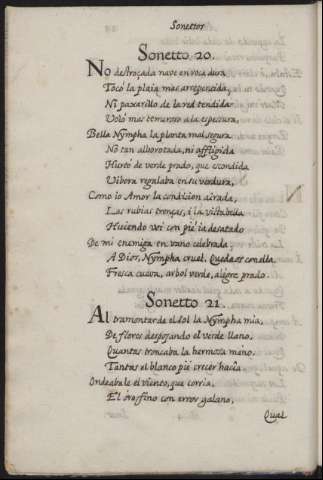 Sonettos
Sonetto 20.
No destroçada nave en roca dura
Tocò la plaia mas arrepentida,
Ni paxarillo de la red tendida
Volò mas temeroso a la espessura,
Bella Nympha la planta mal segura
No tan alborotada, ni affligida
Hurtò de verde prado, que escondida
Vibora regalaba en su verdura,
Como io Amor la condicion airada,
Las rubias trenças, i la vista bella
Huiendo voi con pie ia desatado
De mi enemiga en vano celebrada;
A Dios, Nympha cruel. Quedaos con ella
Fresca cueva, arbol verde, alegre prado.
Sonetto 21.
Al tramontar de el Sol la Nympha mia,
De flores despojando el verde llano,
Quantas troncaba la hermosa mano,
Tantas el blanco pie crecer hacia.
Ondeabale el viento, que corria,
El oro fino con error galano,
Qual